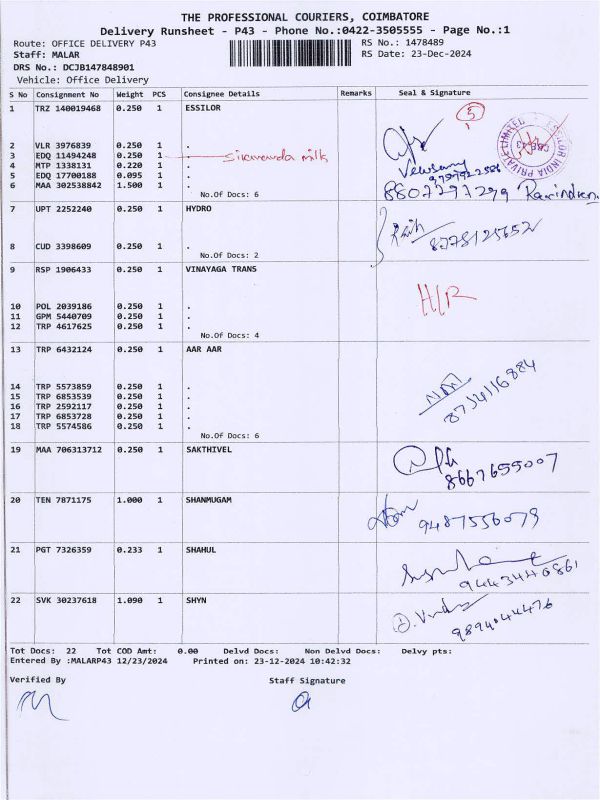 THE PROFESSIONAL COURIERS, COIMBATORE
Delivery Runsheet - P43 - Phone No.:0422-3505555 - Page No.:1
Route: OFFICE DELIVERY P43 RS No.: 1478489
Staff: MALAR RS Date: 23-Dec-2024
DRS No.: DCJB147848901
Vehicle: Office Delivery
S No Consignment No Weight PCS Consignee Details Remarks Seal & Signature
1 TRZ 140019468 0.250 1 ESSILOR 5
2 VLR 3976839 0.250 1 .
3 EDQ 11494248 0.250 1 . milk
4 MTP 1338131 0.220 1 .
5 EDQ 17700188 0.095 1 .
6 MAA 302538842 1.500 1 . 8807297299
No.Of Docs: 6
7 UPT 2252240 0.250 1 HYDRO
8778125652
8 CUD 3398609 0.250 1 .
No.Of Docs: 2
9 RSP 1906433 0.250 1 VINAYAGA TRANS
H/R
10 POL 2039186 0.250 1 .
11 GPM 5440709 0.250 1 .
12 TRP 4617625 0.250 1 .
No.Of Docs: 4
13 TRP 6432124 0.250 1 AAR AAR
14 TRP 5573859 0.250 1 .
15 TRP 6853539 0.250 1 .
16 TRP 2592117 0.250 1 .
17 TRP 6853728 0.250 1 .
18 TRP 5574586 0.250 1 .
No.Of Docs: 6
19 MAA 706313712 0.250 1 SAKTHIVEL
8667655007
20 TEN 7871175 1.000 1 SHANMUGAM
9487556079
21 PGT 7326359 0.233 1 SHAHUL
9443446861
22 SVK 30237618 1.090 1 SHYN
9894044476
Tot Docs: 22 Tot COD Amt: 0.00 Delvd Docs: Non Delvd Docs: Delvy pts:
Entered By :MALARP43 12/23/2024 Printed on: 23-12-2024 10:42:32
Verified By Staff Signature